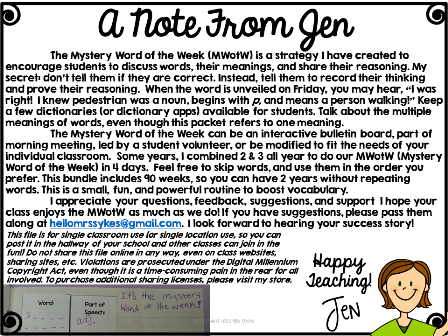 A Note From Jen
The Mystery Word of the Week (MWotW) is a strategy I have created to
encourage students to discuss words, their meanings, and share their reasoning. My
secret: don't tell them if they are correct. Instead, tell them to record their thinking
and prove their reasoning. When the word is unveiled on Friday, you may hear, "I was
right! I knew pedestrian was a noun, begins with p, and means a person walking!" Keep
a few dictionaries (or dictionary apps) available for students. Talk about the multiple
meanings of words, even though this packet refers to one meaning.
The Mystery Word of the Week can be an interactive bulletin board, part of
morning meeting, led by a student volunteer, or be modified to fit the needs of your
individual classroom. Some years, I combined 2 & 3 all year to do our MWotW (Mystery
Word of the Week) in 4 days. Feel free to skip words, and use them in the order you
prefer. This bundle includes 90 weeks, so you can have 2 years without repeating
words. This is a small, fun, and powerful routine to boost vocabulary.
I appreciate your questions, feedback, suggestions, and support. I hope your
class enjoys the MWotW as much as we do! If you have suggestions, please pass them
along at hellomrssykes@gmail.com. I look forward to hearing your success story!
This file is for single classroom use (or single location use, so you can
post it in the hallway of your school and other classes can join in the
fun!) Do not share this file online in any way, even on class websites,
sharing sites, etc. Violations are prosecuted under the Digital Millennium
Copyright Act, even though it is a time-consuming pain in the rear for all
involved. To purchase additional sharing licenses, please visit my store.
Happy
Teaching!
Jen
Word:
Part of
Speech:
adj.
It's the mystery
Word of the week!